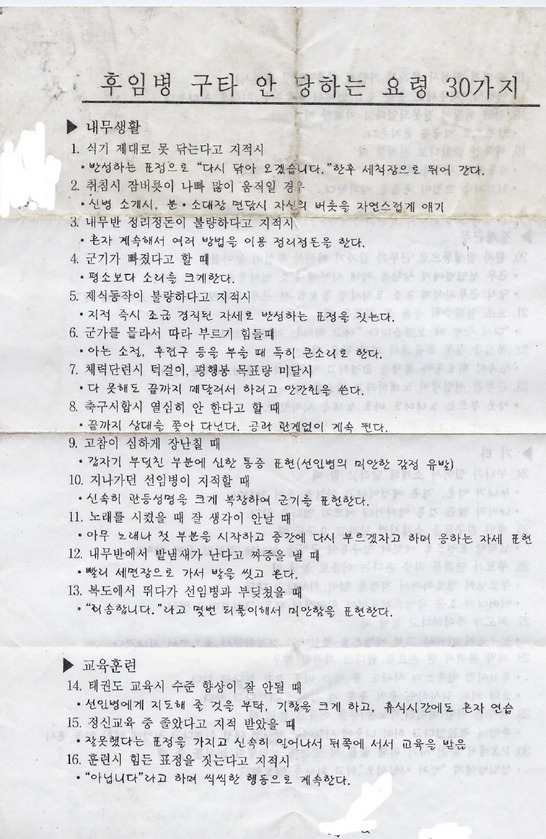 후임병 구타 안 당하는 요령 30가지
▶ 내무생활
1. 식기 제대로 못 닦는다고 지적시
• 반성하는 표정으로 "다시 닦아 오겠습니다."한후 세척장으로 뛰어 간다.
2. 취침시 잠버릇이 나빠 많이 움직일 경우
• 신병 소개시, 분•소대장 면담시 자신의 버릇을 자연스럽게 얘기
3. 내무반 정리정돈이 불량하다고 지적시
• 혼자 계속해서 여러 방법을 이용 정리정돈을 한다.
4. 군기가 빠졌다고 할 때
• 평소보다 소리를 크게한다.
5. 제식동작이 불량하다고 지적시
• 지적 즉시 조금 경직된 자세로 반성하는 표정을 짓는다.
6. 군가를 몰라서 따라 부르기 힘들때
• 아는 소절, 후렴구 등을 부를 때 특히 큰소리로 한다.
7. 체력단련시 턱걸이, 평행봉 목표량 미달시
• 다 못해도 끝까지 메달려서 하려고 안간힘을 쓴다.
8. 축구시합시 열심히 안 한다고 할 때
• 끝까지 상대를 쫓아 다닌다. 공과 관계없이 계속 뛴다.
9. 고참이 심하게 장난칠 때
• 갑자기 부딪친 부분에 심한 통증 표현(선임병의 미안한 감정 유발)
10. 지나가던 선임병이 지적할 때
• 신속히 관등성명을 크게 복창하여 군기를 표현한다.
11. 노래를 시켰을 때 잘 생각이 안날 때
• 아무 노래나 첫 부분을 시작하고 중간에 다시 부르겠자고 하며 응하는 자세 표현
12. 내무반에서 발냄새가 난다고 짜증을 낼 때
• 빨리 세면장으로 가서 발을 씻고 온다.
13. 복도에서 뛰다가 선임병과 부딪혔을 때
• "죄송합니다."라고 몇번 되풀이해서 미안함을 표현한다.
▶ 교육훈련
14. 태권도 교육시 수준 향상이 잘 안될 때
• 선임병에게 지도해 줄 것을 부탁, 기합을 크게 하고, 휴식시간에도 혼자 연습
15. 정신교육 중 졸았다고 지적 받았을 때
• 잘못했다는 표정을 가지고 신속히 일어나서 뒤쪽에 서서 교육을 받음
16. 훈련시 힘든 표정을 짓는다고 지적시
• "아닙니다"라고 하며 씩씩한 행동으로 계속한다.